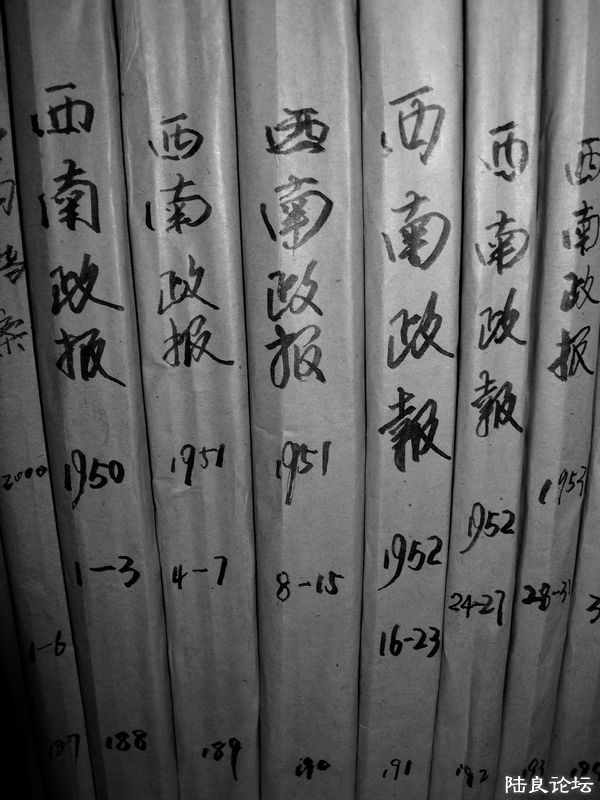 西南政报
1950
1-3
188
西南政报
1951
4-7
189
西南政报
1951
8-15
190
西南政報
1952
16-23
191
西南政報
1952
24-27
192
西南政报
1953
28-31
193
2000
1-6
187
陆良论坛